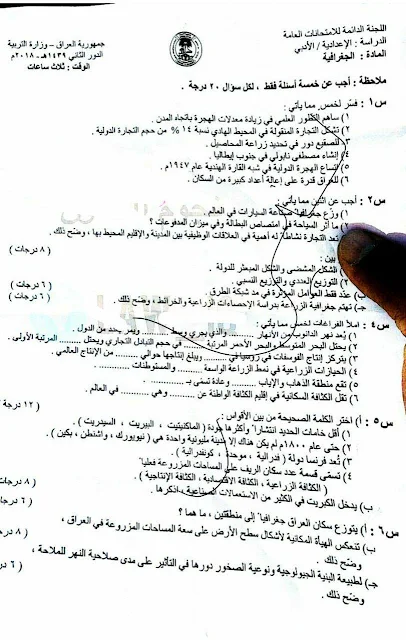 اللجنة الدائمة للامتحانات العامة
الدراسة : الإعدادية / الأدبي
المادة : الجغرافية
جمهورية العراق - وزارة التربية
الدور الثاني ١٤٣٩هـ - ٢٠١٨م
الوقت : ثلاث ساعات
ملاحظة : أجب عن خمسة أسئلة فقط ، لكل سؤال ٢٠ درجة .
س١ : فسّر لخمس مما يأتي :
١) ساهم التطور العلمي في زيادة معدلات الهجرة باتجاه المدن .
٢) تشكل التجارة المنقولة في المحيط الهادي نسبة ١٤ % من حجم التجارة الدولية .
٣) للصقيع دور في تحديد زراعة المحاصيل .
٤) إنشاء مصطفى نابولي في جنوب إيطاليا .
٥) اتساع الهجرة الدولية في شبه القارة الهندية عام ١٩٤٧م .
٦) للعراق قدرة على إعالة أعداد كبيرة من السكان .
س٢ : أجب عن اثنين مما يأتي :
١) وزّع جغرافياً صناعة السيارات في العالم .
٢) ما أثر السياحة في امتصاص البطالة وفي ميزان المدفوعات ؟
تعد التجارة نشاطاً له أهمية في العلاقات الوظيفية بين المدينة والإقليم المحيط بها ، وضح ذلك .
بين : ( ٨ درجات )
الشكل المشضى والشكل المبعثر للدولة .
التوزيع العددي والتوزيع النسبي . ( ٦ درجات )
ب) عدد فقط العوامل المؤثرة في مد شبكة الطرق . ( ٦ درجات )
ج) تهتم جغرافية الزراعة بدراسة الإحصاءات الزراعية والخرائط ، وضح ذلك .
س٤ : املأ الفراغات لخمس مما يأتي :
١) يُعد نهر الدانوب من الأنهار ........ والذي يجري وسط ........ ويمر بحد من الدول .
٢) يحتل البحر المتوسط والبحر الأحمر المرتبة ........ في حجم التبادل التجاري ويحتل ........ المرتبة الأولى .
٣) يتركز إنتاج الفوسفات في روسيا في ........ ويبلغ إنتاجها حوالي ........ من الإنتاج العالمي .
٤) الحيازات الزراعية في نمط الزراعة الواسعة ........ والمستوطنات ........ .
٥) تقع منطقة الذهاب والإياب ........ وعادة تسمى بـ ........ .
٦) تقل الكثافة السكانية في إقليم الكثافة الواطئة عن ........ وهي ........ في العالم .
س٥ : أ) اختر الكلمة الصحيحة من بين الأقواس : ( ١٢ درجة )
١) أقل خامات الحديد انتشاراً وأكثرها جودة ( الماكنيتيت ، البيريت ، السيدريت ) .
٢) حتى عام ١٨٠٠م لم يكن هناك إلا مدينة مليونية واحدة هي ( نيويورك ، واشنطن ، بكين ) .
٣) تُعد فرنسا دولة ( فدرالية ، موحدة ، كونفدرالية ) .
٤) تسمى قسمة عدد سكان الريف على المساحات المزروعة فعلياً
( الكثافة الزراعية ، الكثافة الاقتصادية ، الكثافة الإنتاجية ) .
ب) يدخل الكبريت في الكثير من الاستعمالات الصناعية ، اذكرها . ( ٨ درجات )
س٦ : أ) يتوزع سكان العراق جغرافياً إلى منطقتين ، ما هما ؟
ب) تنعكس الهيأة المكانية لأشكال سطح الأرض على سعة المساحات المزروعة في العراق ،
وضح ذلك . ( ٨ درجات )
جـ) لطبيعة البنية الجيولوجية ونوعية الصخور دورها في التأثير على مدى صلاحية النهر للملاحة ،
وضح ذلك .